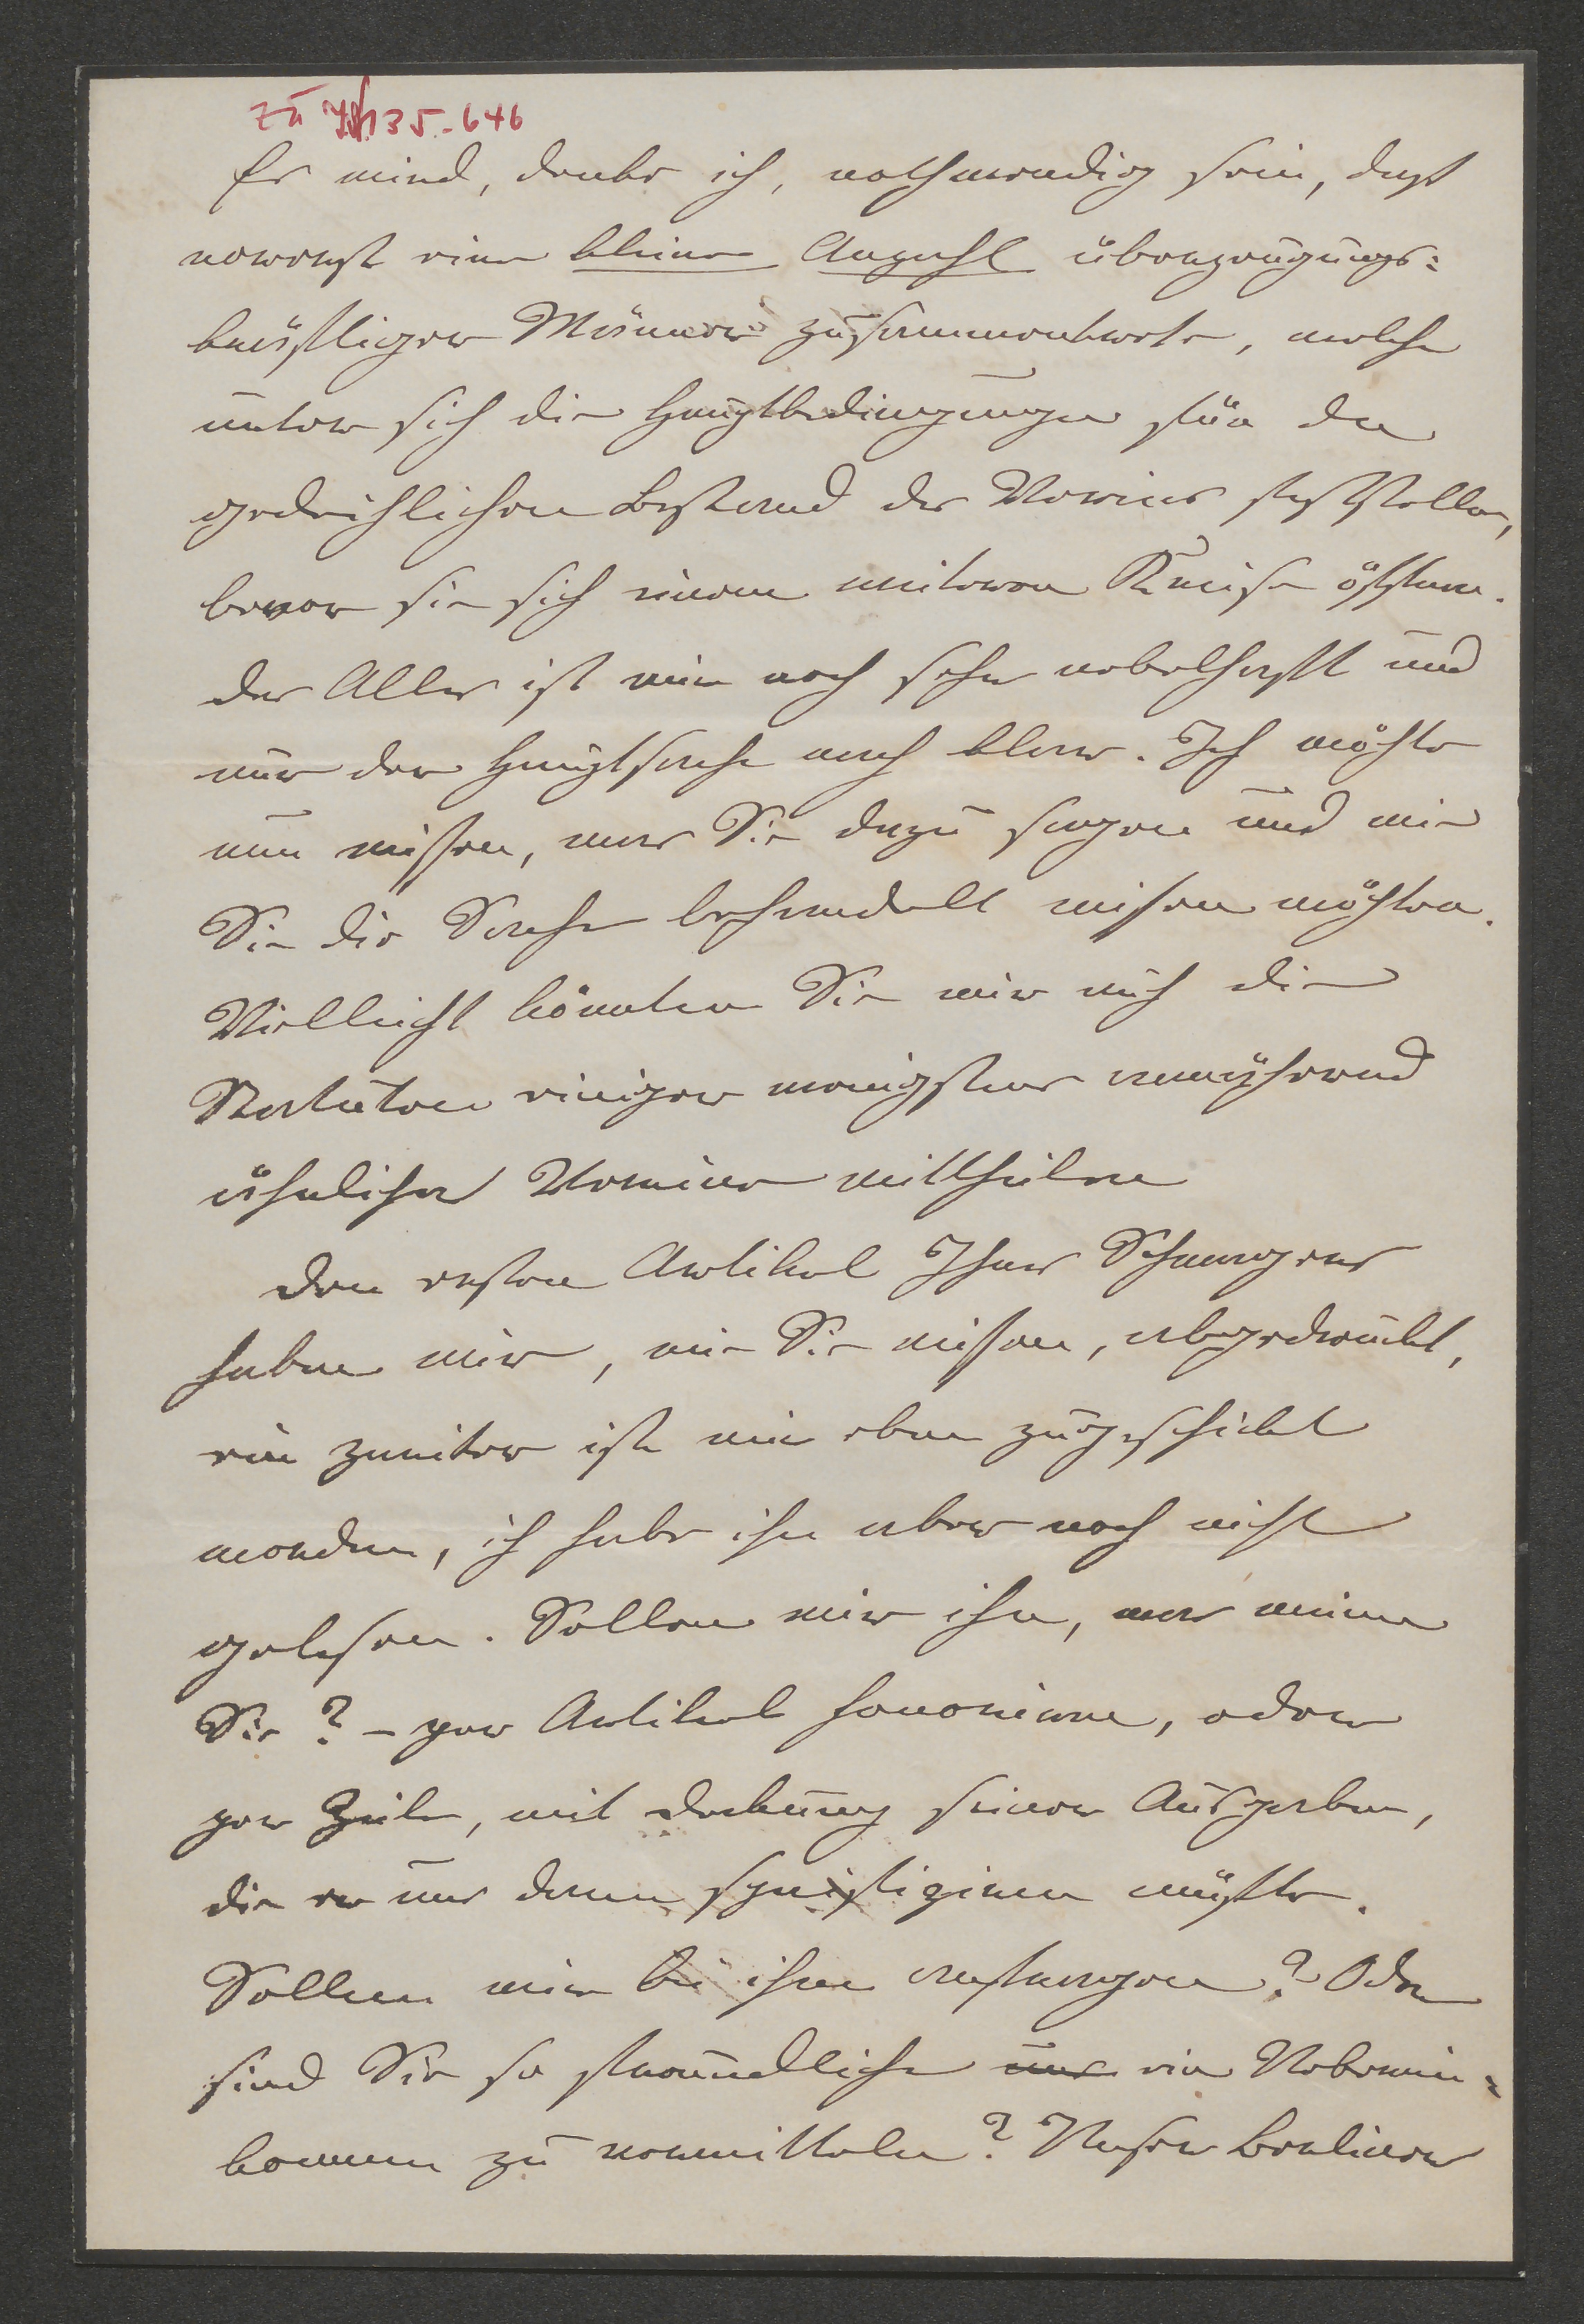 zu 35-646
Es wird, denke ich, nothwendig sein, daß
vorerst eine kleine Anzahl überzeugungs=
kräftiger Männer zusammentrete, welche
unter sich die Hauptbedingungen für den
gedeihlichen Bestand des Vereins feststellen,
bevor sie sich einem weiteren Kreise öffnen.
Das Alles ist mir noch sehr nebelhaft und
nur der Hauptsache nach klar. Ich möchte
nun wissen, was Sie dazu sagen und wie
Sie die Sache behandelt wissen möchten.
Vielleicht könnten Sie mir auch die
Statuten einiger wenigstens annähernd
ähnlicher Vereine mittheilen
Den ersten Artikel Ihres Schwagers
haben wir, wie Sie wissen, abgedruckt,
ein zweiter ist mir eben zugeschickt
worden, ich habe ihn aber noch nicht
gelesen. Sollen wir ihn, was meinen
Sie? – per Artikel honoriren, oder
per Zeile, mit Deckung seiner Ausgaben,
die er uns dann spezifiziren müßte.
Sollen wir bei ihm anfragen? Oder
sind Sie so freundlich ein Ueberein=
kommen zu vermitteln? Unser Berliner